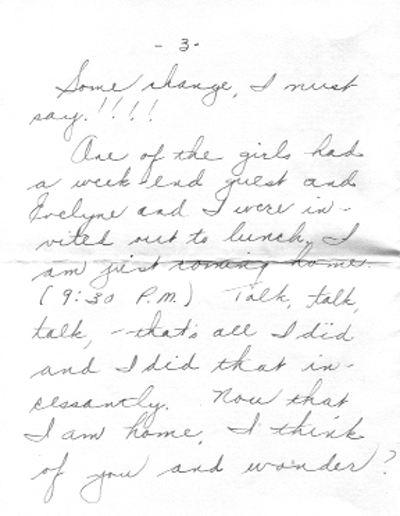 - 3 -
Some change, I must
say.!!!!
One of the girls had
a week-end guest and
Evelyne and I were in-
vited out to lunch. I
am just coming home.
(9:30 P.M.) Talk, talk,
talk, - that's all I did
and I did that in-
cessantly. Now that
I am home, I think
of you and wonder?